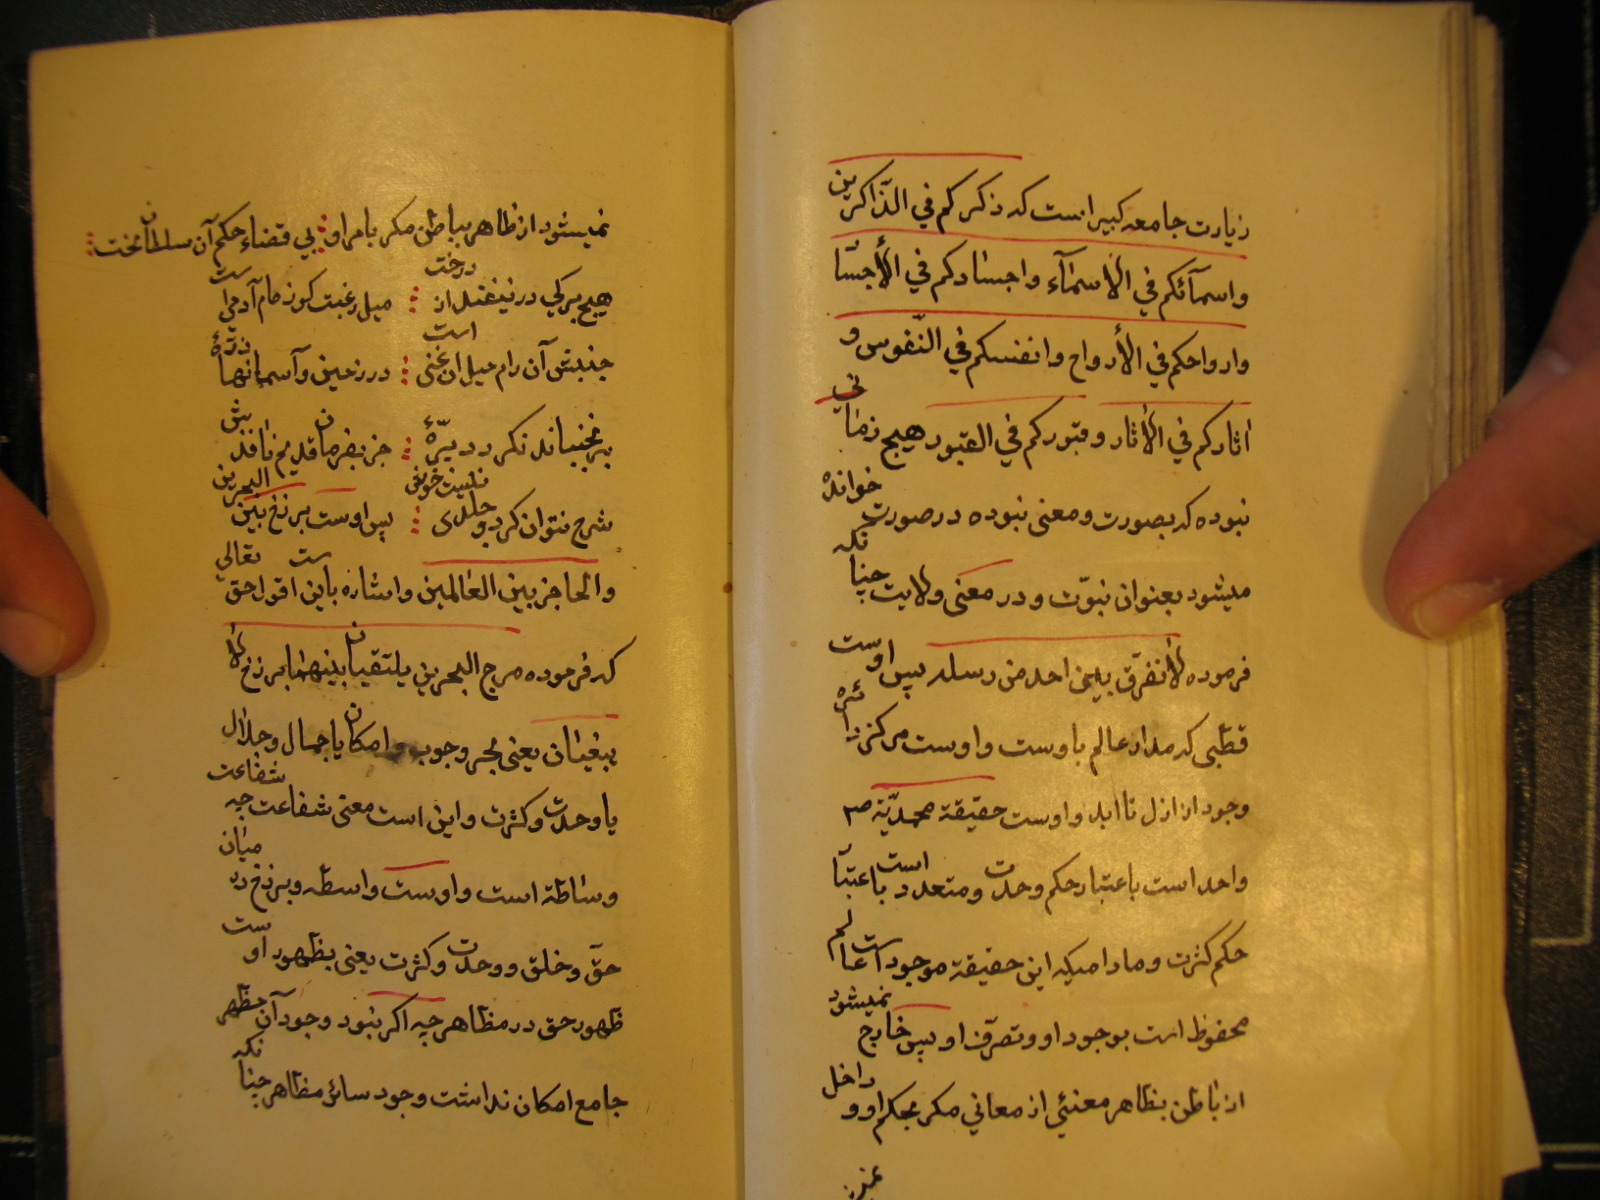 زیارت جامعه کبیر است که ذکرکم في الذّاکرین
واسمآئکم في الاسمآء واجسادکم في الأجسا
وارواحکم في الأرواح وانفسکم في النّفوس و
اثارکم في الاثار وقبورکم في القبور هیچ زمانی
نبوده که بصورت ومعنی نبوده در صورت خوانده
میشود بعنوان نبوّت و در معنی ولایت چنانکه
فرموده لانفرّق بین احد من رسله پس اوست
قطبی که مدار عالم باوست واوست مرکز دائره
وجود از ازل تا ابد واوست حقیقة محمدیّة ص
واحد است باعتبار حکم وحدت ومتعدد است باعتبا
حکم کثرت ومادامیکه این حقیقة موجود است عالم
محفوظ است بوجود او وتصرّف او پس خارج نمیشود
از باطن بظاهر معنئي از معاني مکر بحکم او و داخل
نمیشود از ظاهر بباطن مکر بامر او بي قضاء حکم آن سلطان بخت
هیچ برکي در نیفتد از درخت میل رغبت کوز مام آدمي است
جنبش آن رام میل ان غنی است در زمین وآسمانها ذرّهٔ
پر نجنباند نکردد پرّهٔ جز بفرمان قدیم نافذش
شرح نتوان کرد وجلدی نیست خوش پس اوست برزخ بین البحرین
والحاجز بین العالمین واشاره باین اقوال است حق تعالي
که فرموده مرج البحرین یلتقیان بینهما برزخ لا
یبغیان یعنی بحر وجوب و امکان یا جمال وجلال
یا وحدت وکثرت واین است معنی شفاعت چه شفاعت
وساطة است واوست واسطه وبرزخ در میان
حقّ وخلق ووحدت وکثرت یعنی بظهور اوست
ظهور حق در مظاهر چه اکر نبود وجود آن مظهر
جامع امکان نداشت وجود سائر مظاهر چنانکه